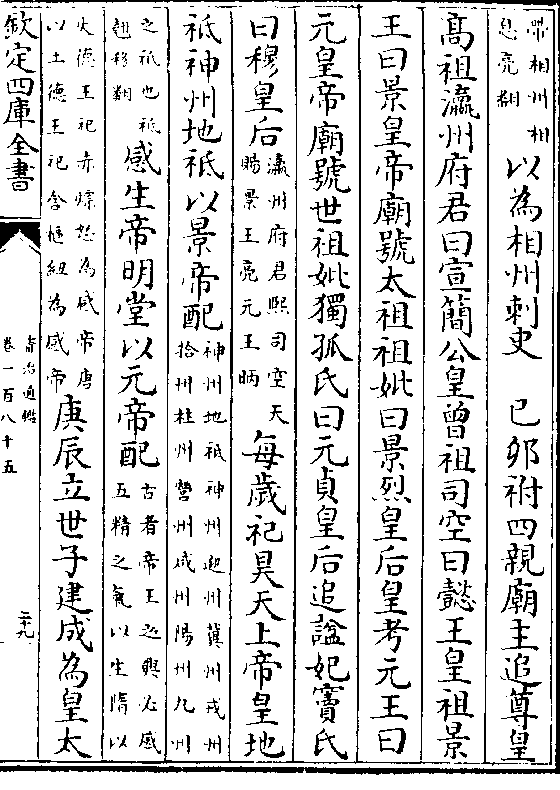 相州相
息亮翻
以為相州刺史　己卯祔四親廟主追尊皇
髙祖瀛州府君曰宣簡公皇曾祖司空曰懿王皇祖景
王曰景皇帝廟號太祖祖妣曰景烈皇后皇考元王曰
元皇帝廟號世祖妣獨孤氏曰元貞皇后追諡妃竇氏
曰穆皇后
瀛州府君熙司空天
賜景王虎元王昞
每歲祀昊天上帝皇地
祇神州地祇以景帝配
神州地祇神州迎州冀州戎州
拾州柱州營州咸州陽州九州
之祇也祇
翹移翻
感生帝明堂以元帝配
古者帝王之興必感
五精之氣以生隋以
火德王祀赤熛怒為感帝唐
以土德王祀含樞紐為感帝
庚辰立世子建成為皇太
欽定四庫全書
資治通鑑
卷一百八十五
二十九